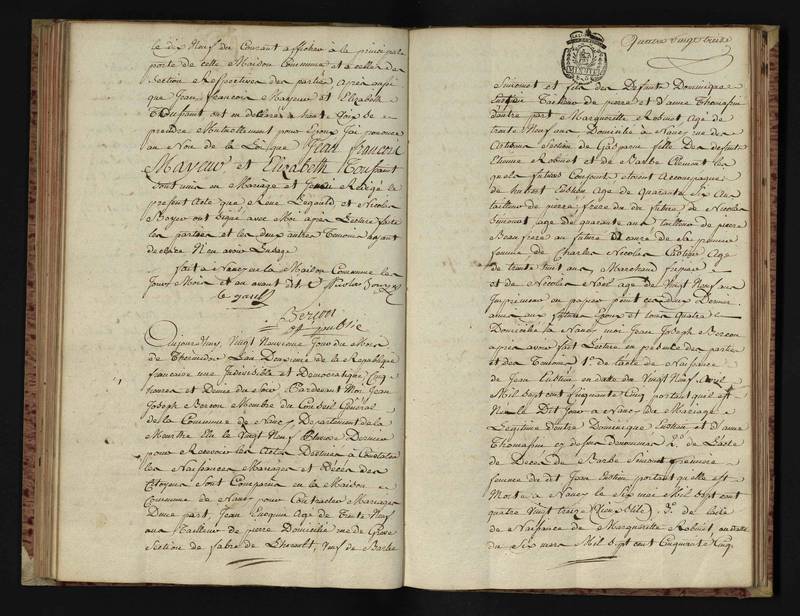 le dix Neuf du Courant afficher à la principale
porte de cette Maison Commune et à celles des
Section Respectives des parties après aussi
que Jean francois Mayeur et Elizabeth
Toussaint ont declaré à haute Voix Se
prendre Mutuellement pour Epoux J'ai prononcé
au Nom de la Loi que Jean francois
Mayeur et Elizabeth Toussaint
Sont unis en Mariage et J'ai Rédigé le
present Acte que René Legould et Nicolas
Boyer ont Signé avec Moi après Lecture faite
les parties et les deux autres Temoins ayant
declaré N'en avoir L'usage
fait a Nancy en la Maison Commune les
Jour Mois et an avant dit Nicolas
Berçon
off. public
Aujourd'huy Vingt Neuvieme Jour du Mois
de Thermidor L'an Deuxieme de la Republique
francaise une Indivisible et Democratique Cinq
heures et Demie du Soir Pardevant Moi Jean
Joseph Bercon Membre du Conseil Général
de la Commune de Nancy Departement de la
Meurthe Elu le Vingt Neuf Dernier
pour Recevoir les Actes Destinés à Constater
les Naissances Mariages et Décès des
Citoyens Sont Comparus en la Maison
Commune de Nancy pour Contracter Mariage
Dune part, Jean Agé de Trente Neuf
ans Tailleur de pierre Domicilié rue de Greve
Section de Sabre de Veuf de Barbe
Quatre Vingt treize
Simonet et fils des Defunts Dominique
Tailleur de pierre et D'anne Thomassin
D'autre part Marguerite Robinet Agé de
trente Neuf ans Domiciliée à Nancy rue des
Section de fille des defunts
Etienne Robinet et de Barbe Clement les
quels futurs Conjoints etoient Accompagnés
de Agé de Quarante Six ans
tailleur de pierre frere du futur de Nicolas
Simonet agé de quarante ans tailleur de pierre
Beau frere au futur à cause de sa premiere
femme de Charles Nicolas Agé
de trente huit ans Marchand fripier
et de Nicolas Noël agé de Vingt Neuf ans
Imprimeur en papier peint ces deux Dernier
amis aux futurs Epoux et tous quatre
Domiciliés à Nancy moi Jean Joseph Bercon
après avoir fait Lecture en présence des parties
et des Temoins 1.° de l'acte de Naissance
de Jean en datte du Vingt Neuf
Mil Sept cent Cinquante Cinq portant qu'il est
Né le Dit Jour à Nancy du Mariage
Legitime d'entre Dominique et d'anne
Thomassin cy dessus denommés 2.° de L'acte
de Décès de Barbe Simonet premiere
femme du dit Jean portant qu'elle est
Morte à Nancy le Six mai Mil Sept cent
quatre Vingt treize (Vieux Stile) 3.° de l'acte
de Naissance de Marguerite Robinet en datte
du Six mars Mil Sept cent Cinquante Cinq